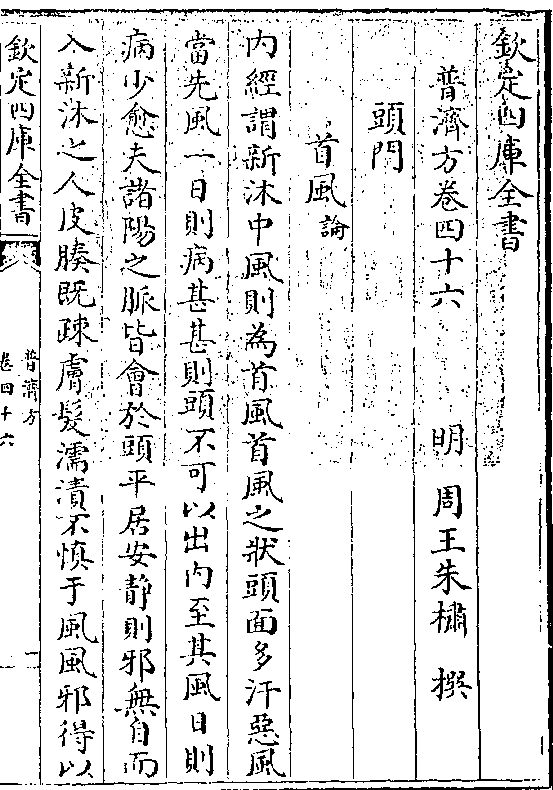 欽定四庫全書
普濟方卷四十六　明　周王朱橚　撰
頭門
首風論
內經謂新沐中風則為首風首風之狀頭面多汗惡風
當先風一日則病甚甚則頭不可以出內至其風日則
病少愈夫諸陽之脈皆會於頭平居安静則邪無自而
入新沐之人皮腠既疎膚髮濡漬不慎于風風邪得以
欽定四庫全書
普濟方
卷四十六
一